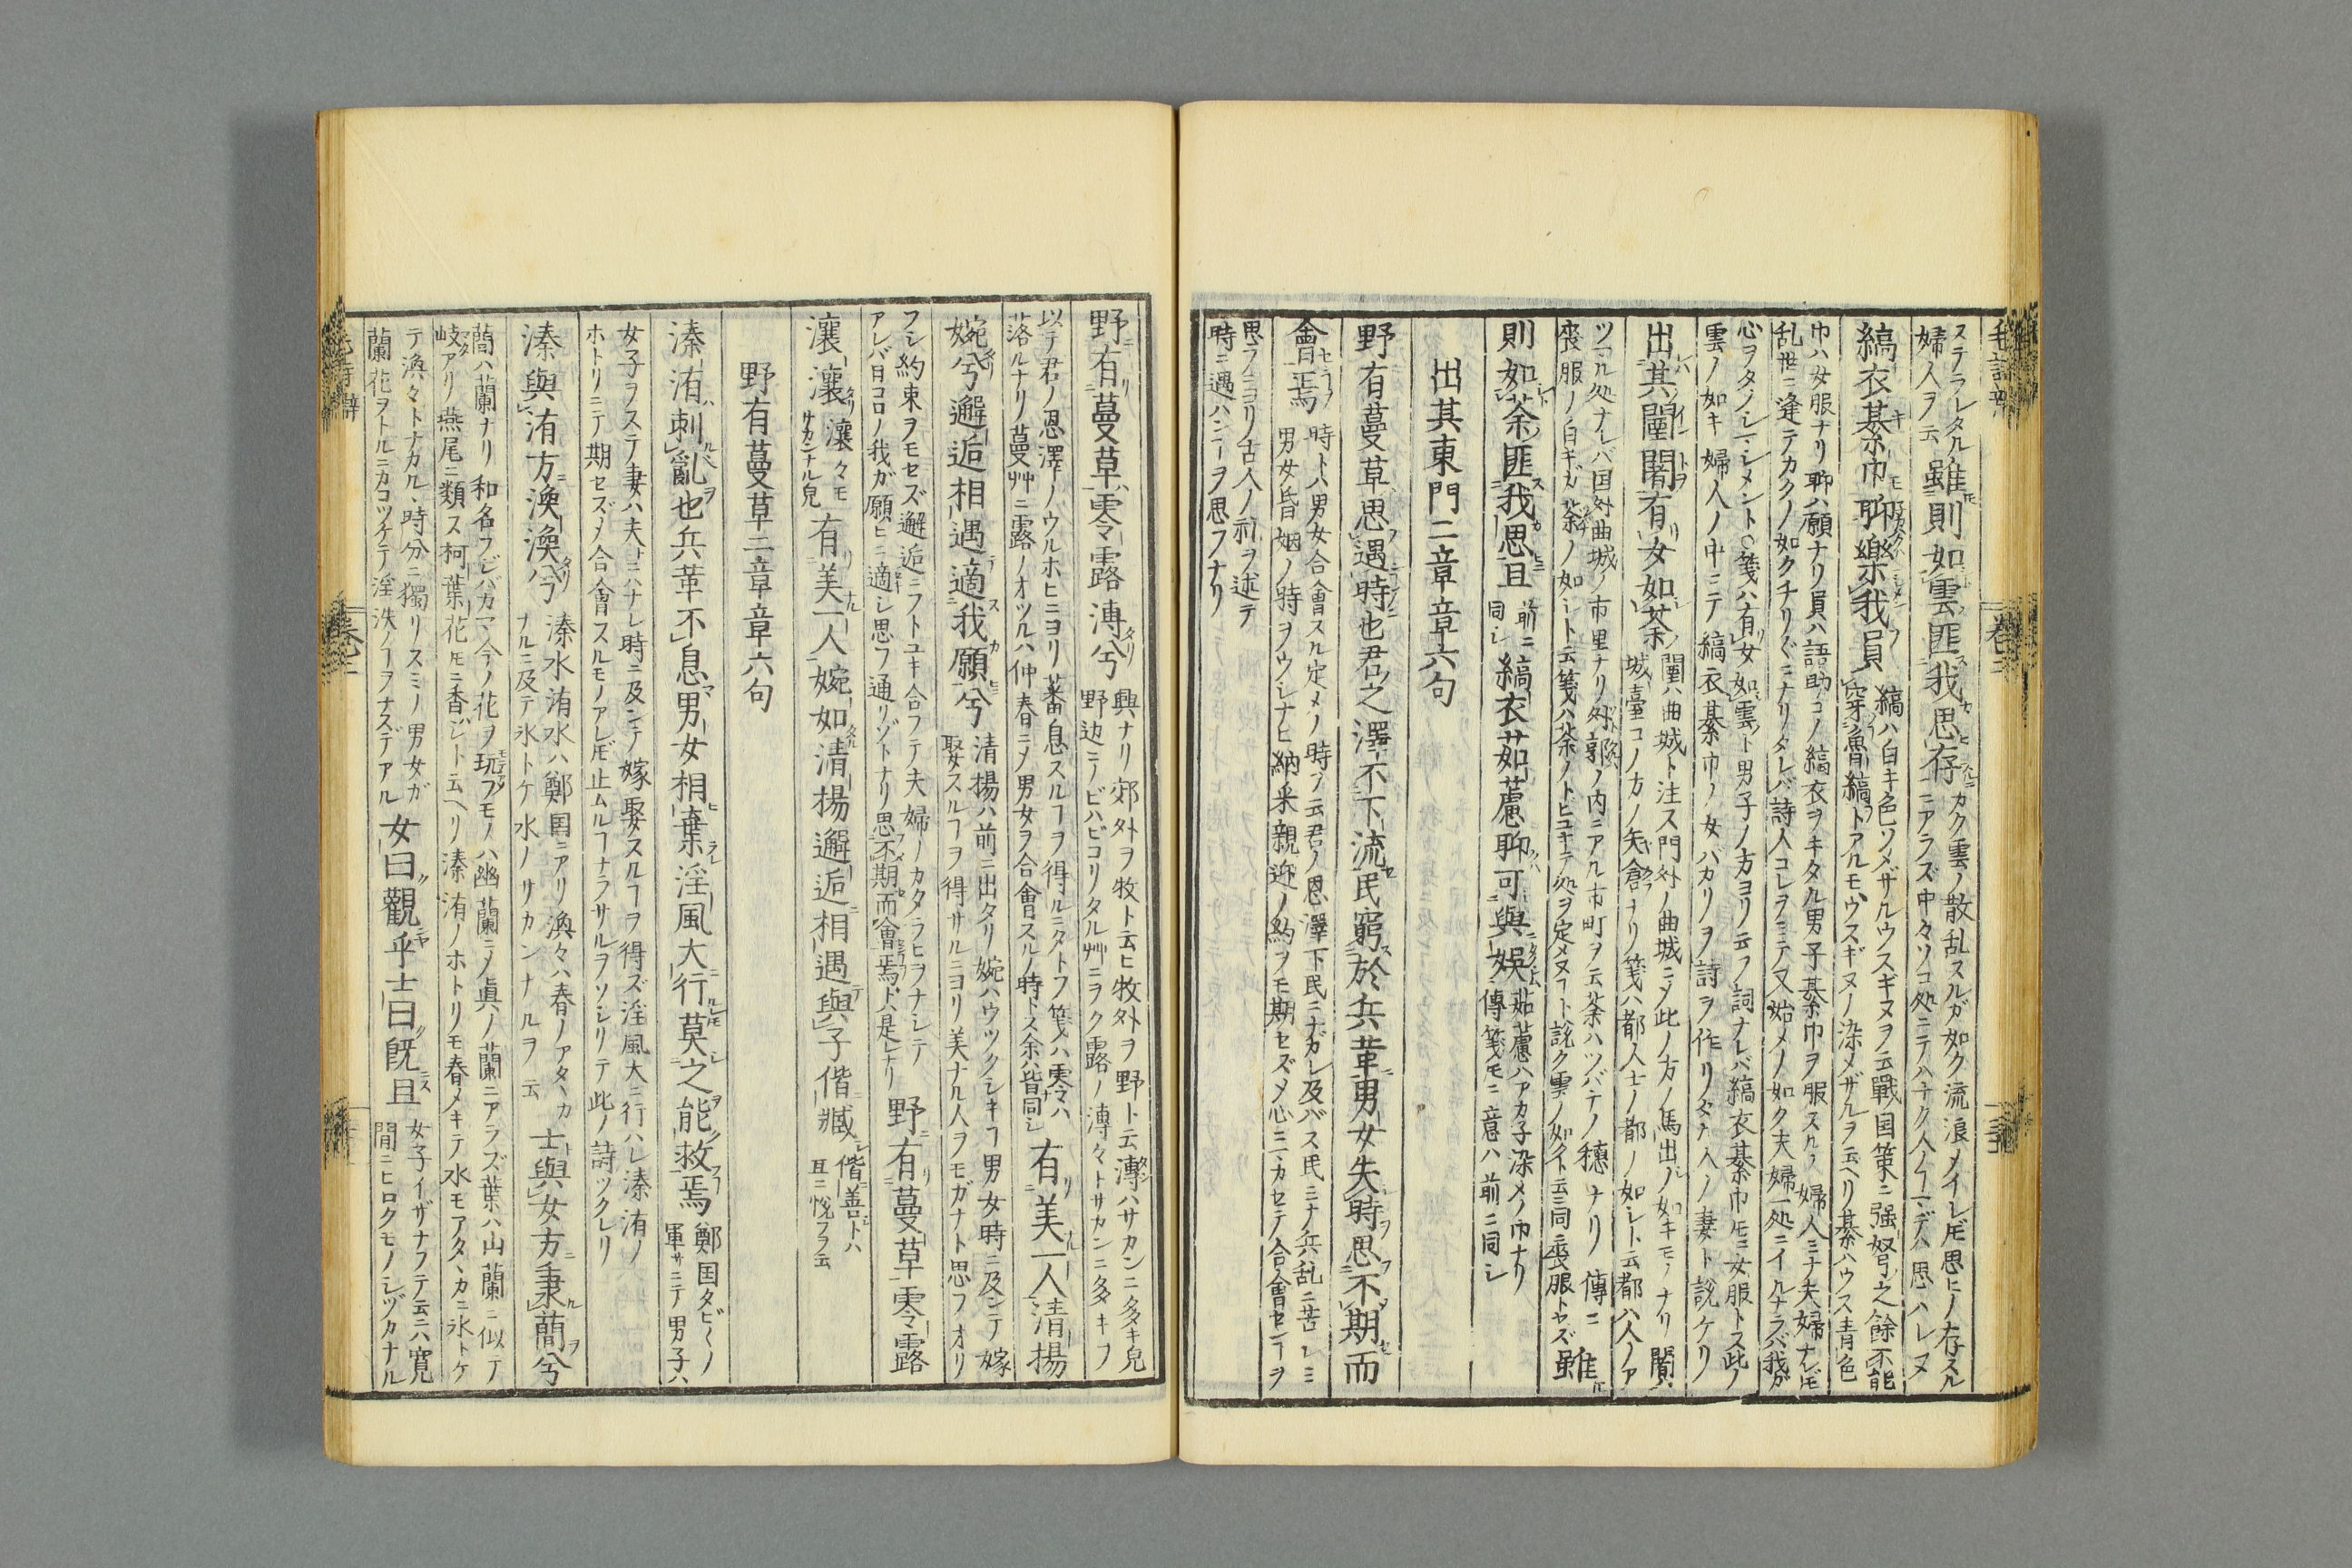 ステラレタル
婦人ヲ云
雖則如雲匪我思存
カク雲ノ散乱スルガ如ク流浪ノイレ𪜈思ヒノ存スル
ニアラズ中々ソコ処ニテハナク人ノ
縞衣綦巾聊樂我員
縞ハ白キ色ソメザルウスギヌヲ云戰国策ニ強弩之餘不能
穿魯縞トアルモウスギヌノ染メザルヲ云ヘリ綦ハウス青色
巾ハ女服ナリ聊ハ願ナリ員ハ語助コノ縞衣ヲキタル男子綦巾ヲ服スル婦人ミナ夫婦ナレ𪜈
乱世ニ逢テカクノ如クチリ〲ニナリタレバ詩人コレヲミテ又始メノ如ク夫婦一処ニイルナラバ我ガ
心ヲタノシマシメント○箋ハ有女如雲ト男子ノ方ヨリ云フ詞ナレバ縞衣綦巾𪜈ニ女服トス此ノ
雲ノ如キ婦人ノ中ニテ縞衣綦巾ノ女バカリヲ詩ヲ作リタル人ノ妻ト説ケリ
出其闉闍有女如荼
闉ハ曲城ト注ス門外ノ曲城ニ〆此ノ方ノ馬出ノ如キモノナリ闍ハ
城臺コノ方ノ矢倉ナリ箋ハ都人士ノ都ノ如シト云都ハ人ノア
ツマル処ナレバ国外曲城ノ市里ナリ外郭ノ内ニアル市町ヲ云荼ハツバナノ穗ナリ傳ニ
喪服ノ白キガ荼ノ如シト云箋ハ荼ノトビユキテ処ヲ定メヌ㕝ト説ク雲ノ如クト云ニ同喪服トセズ
雖
則如荼匪我思且
前ニ
同シ
縞衣茹藘聊可與娯
茹藘ハアカ子染メノ巾ナリ
傳箋𪜈ニ意ハ前ニ同シ
出其東門二章章六句
野有蔓草思遇時也君之澤不下流民窮於兵革男女失時思不期而
會焉
時トハ男女合會スル定メノ時ヲ云君ノ恩澤下民ニナガレ及バス民ミナ兵乱ニ苦シミ
男女昏姻ノ時ヲウシナヒ納采親迎ノ約ヲモ期セズ〆心ニマカセテ合會センヿヲ
思フニヨリ古人ノ礼ヲ述テ
時ニ遇ハンヿヲ思フナリ
野有蔓草零露漙兮
興ナリ郊外ヲ牧ト云ヒ牧外ヲ野ト云漙ハサカンニ多キ皃
野辺ニノビハビコリタル艸ニヲク露ノ漙々トサカンニ多キヲ
以テ君ノ恩澤ノウルホヒニヨリ蕃息スルヿヲ得ルニタトフ箋ハ零ハ
落ルナリ蔓艸ニ露ノオツルハ仲春ニ〆男女ヲ合會スルノ時トス余ハ皆同シ
有美一人清揚
婉兮邂逅相遇適我願兮
清揚ハ前ニ出タリ婉ハウツクシキヿ男女時ニ及ンデ嫁
娶スルヿヲ得サルニヨリ美ナル人ヲモガナト思フオリ
フシ約束ヲモセズ邂逅ニフトユキ合フテ夫婦ノカタラヒヲナシテ
アレバ日コロノ我ガ願ヒニ適シ思フ通リゾトナリ思不期而會焉トハ是レナリ
野有蔓草零露
瀼瀼
瀼々モ
サカンナル皃
有美一人婉如清揚邂逅相遇與子偕臧
偕善トハ
互ニ悦フヲ云
野有蔓草二章章六句
溱洧刺亂也兵革不息男女相棄淫風大行莫之能救焉
鄭国タビ〳〵ノ
軍サニテ男子ハ
女子ヲステ妻ハ夫トニハナレ時ニ及ンテ嫁娶スルヿヲ得ズ淫風大ニ行ハレ溱洧ノ
ホトリニテ期セズ〆合會スルモノアレ𪜈止ムルヿナラサルヲソシリテ此ノ詩ツクレリ
溱與洧方渙渙兮
溱水洧水ハ鄭国ニアリ渙々ハ春ノアタヽカ
ナルニ及テ氷トケ水ノサカンナルヲ云
士與女方秉蕑兮
蕑ハ蘭ナリ和名フジバカマ今ノ花ヲ玩フモノハ幽蘭ニ〆眞ノ蘭ニアラズ葉ハ山蘭ニ似テ
岐アリ燕尾ニ類ス柯葉花𪜈ニ香シト云ヘリ溱洧ノホトリモ春メキテ水モアタヽカニ氷トケ
テ渙々トナガル時分ニ獨リスミノ男女ガ
蘭花ヲトルニカコツケテ淫泆ノヿヲナスデアル
女曰觀乎士曰旣且
女子イザナフテ云ニハ寛
閒ニヒロクモノシヅカナル